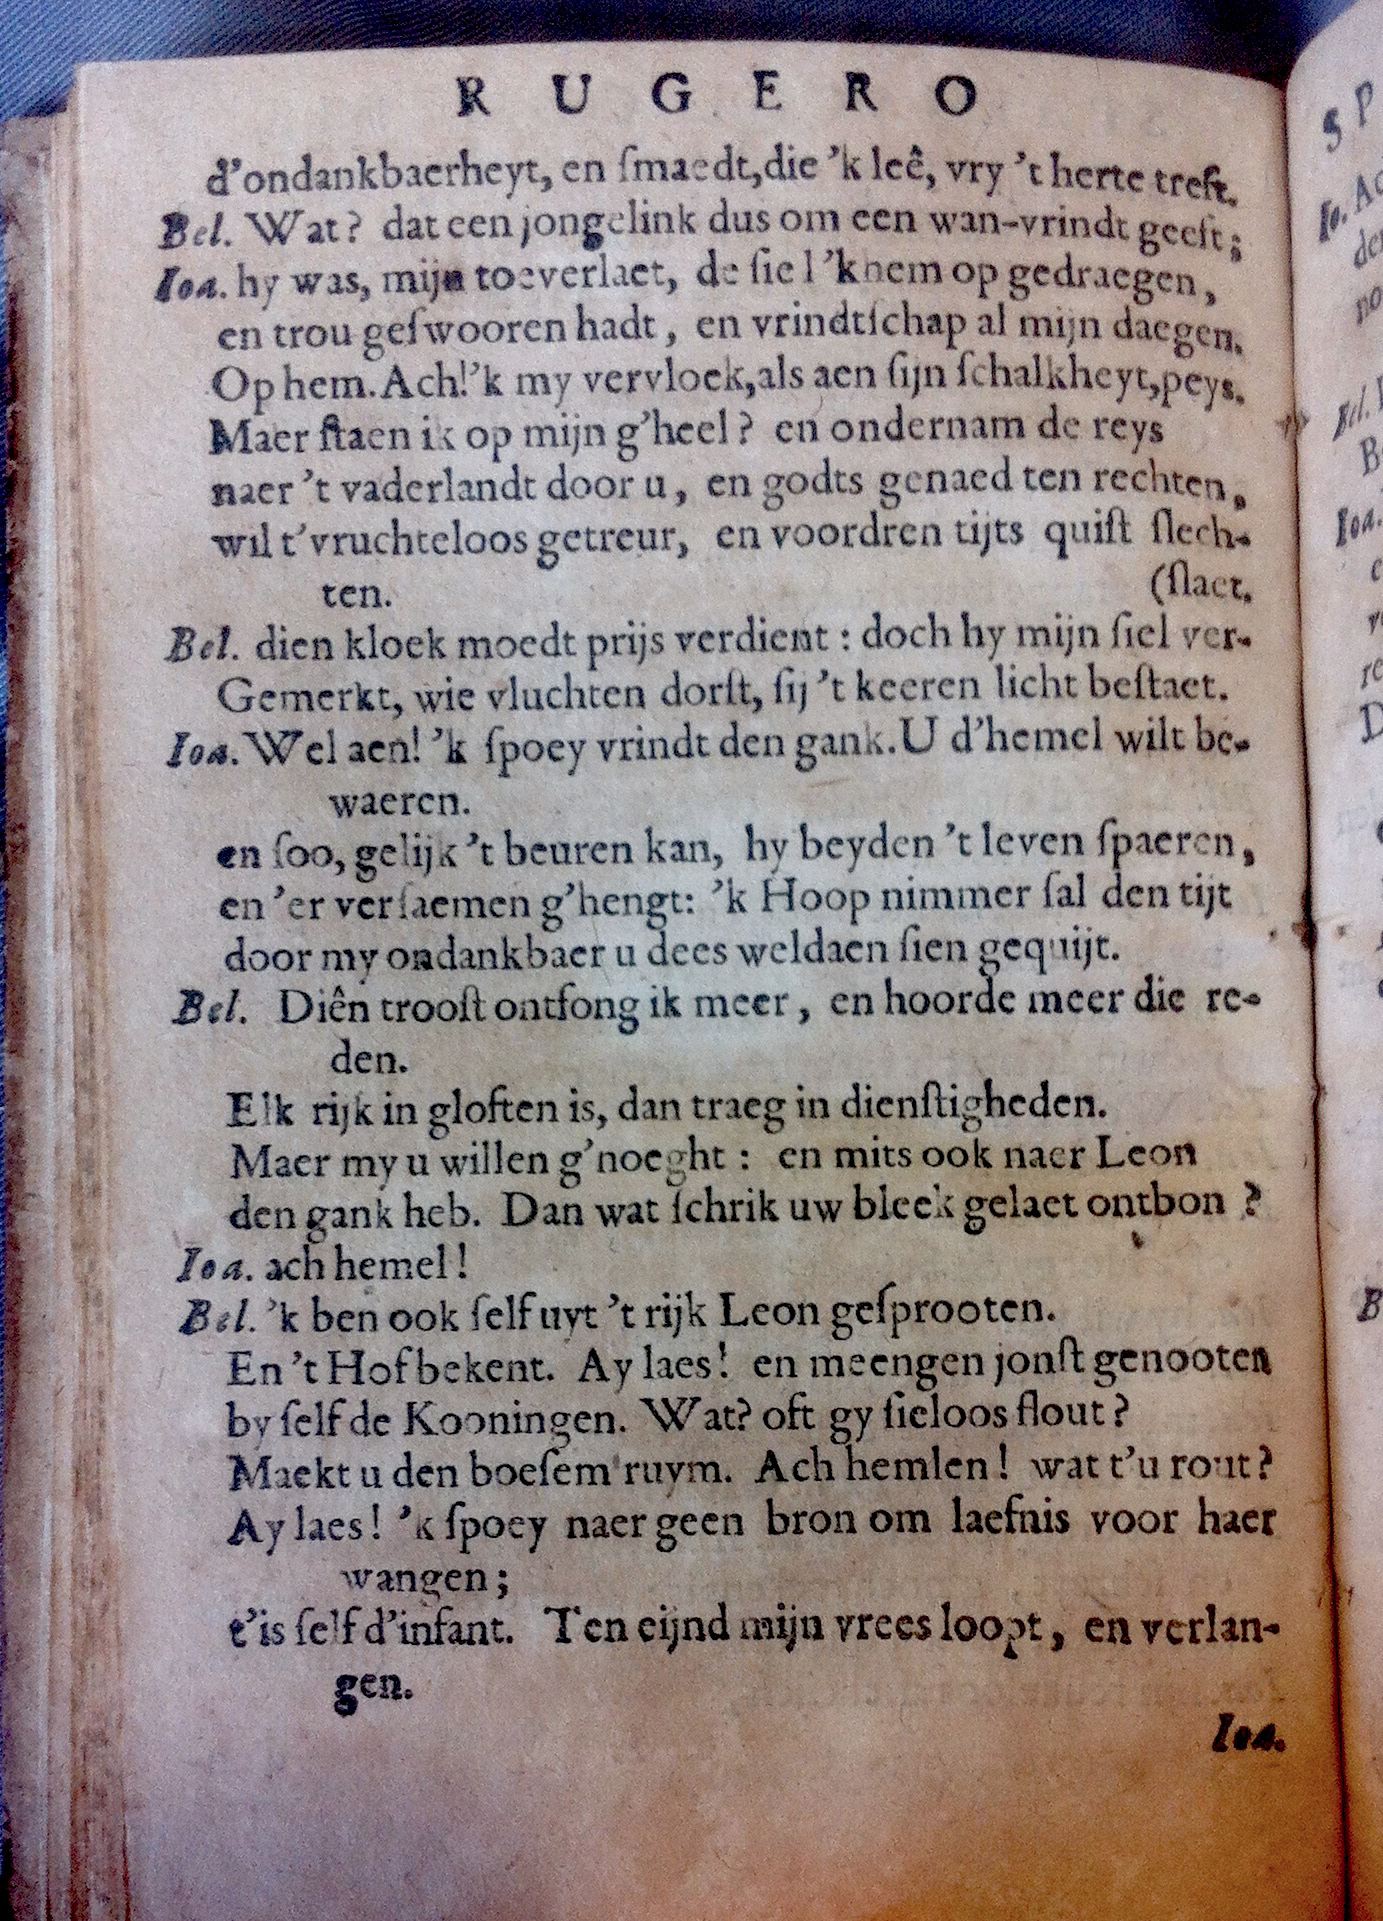 R U G E R O
d'ondankbaerheyt, en ſmaedt, die 'k leê, vry 't herte treft.
Bel. Wat? dat een jongelink dus om een wan-vrindt geeſt;
Ioa. hy was, mijn toeverlaet, de ſiel 'k hem op gedraegen,
en trou geſwooren hadt, en vrindtſchap al mijn daegen.
Op hem. Ach! 'k my vervloek, als aen ſijn ſchalkheyt, peys.
Maer ſtaen ik op mijn g'heel? en ondernam de reys
naer 't vaderlandt door u, en godts genaed ten rechten,
wil t'vruchteloos getreur, en voordren tijts quiſt ſlech-
ten. (ſlaet.
Bel. dien kloek moedt prijs verdient: doch hy mijn ſiel ver-
Gemerkt, wie vluchten dorſt, ſij 't keeren licht beſtaet.
Ioa. Wel aen! 'k ſpoey vrindt den gank. U d'hemel wilt be-
waeren.
en ſoo, gelijk 't beuren kan, hy beyden 't leven ſpaeren,
en 'er verſaemen g'hengt: 'k Hoop nimmer ſal den tijt
door my ondankbaer u dees weldaen ſien gequijt.
Bel. Diên trooſt ontfong ik meer, en hoorde meer die re-
den.
Elk rijk in gloften is, dan traeg in dienſtigheden.
Maer my u willen g'noeght: en mits ook naer Leon
den gank heb. Dan wat ſchrik uw bleek gelaet ontbon?
Ioa. ach hemel!
Bel. 'k ben ook ſelf uyt 't rijk Leon geſprooten.
En 't Hof bekent. Ay laes! en meengen jonſt genooten
by ſelf de Kooningen. Wat? oft gy ſieloos flout?
Maekt u den boeſem ruym. Ach hemlen! wat t'u rout?
Ay laes! 'k ſpoey naer geen bron om laefnis voor haer
wangen;
t'is ſelf d'infant. Ten eijnd mijn vrees loopt, en verlan-
gen.
Ioa.
S P
Io. Ac
der
no
Bel.
B
Ioa.
re
D
B